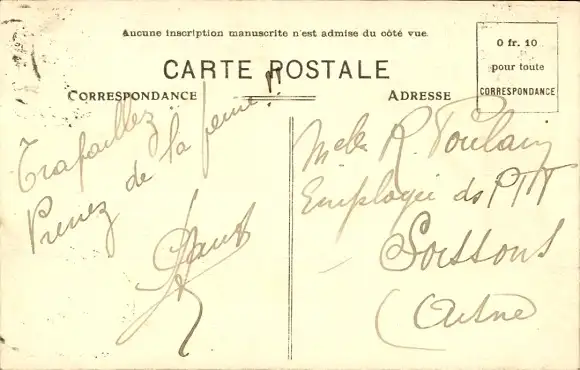 Aucune inscription manuscrite n'est admise du côté vue.
CARTE POSTALE
CORRESPONDANCE
ADRESSE
0 fr. 10
pour toute
CORRESPONDANCE
Travaillez
Prenez de la peine!!
Melle R. Poulain
Employée des PTT
Soissons
(Aisne